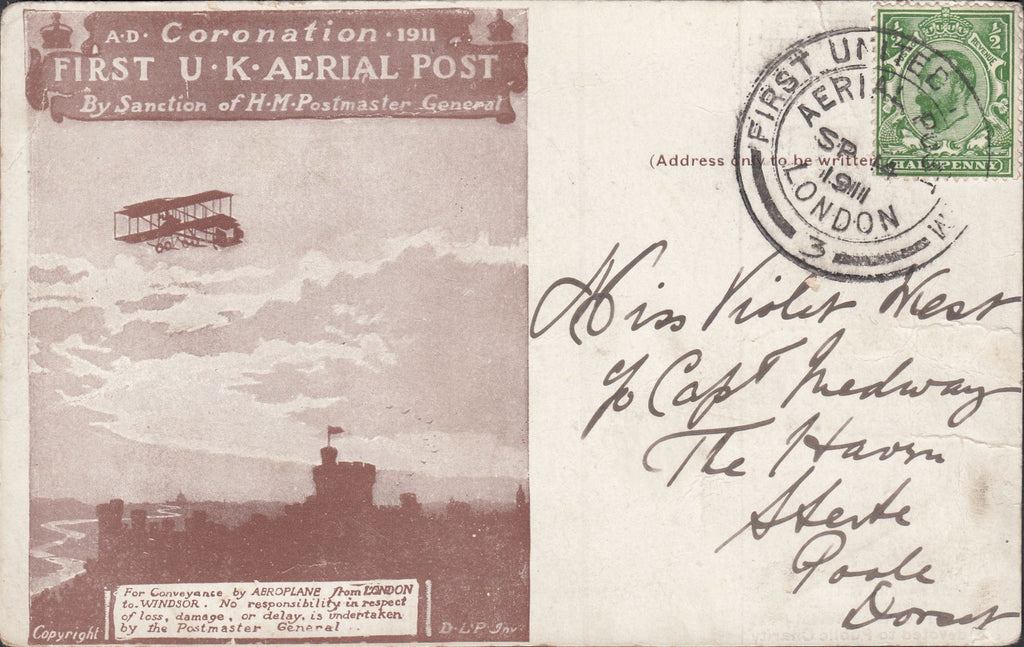 A·D· Coronation ·1911
FIRST U·K·AERIAL POST
By Sanction of H·M·Postmaster General
For Conveyance by AEROPLANE from LONDON
to WINDSOR. No responsibility in respect
of loss, damage, or delay, is undertaken
by the Postmaster General
Copyright
D·L·P· Inv
(Address only to be written
FIRST UNITED
AERIAL POST
SP
1911
LONDON
3
½ ½
REVENUE
HALFPENNY
Miss Violet West
c/o Capt Medway
The Haven
Sterte
Poole
Dorset
devoted to Public Charity